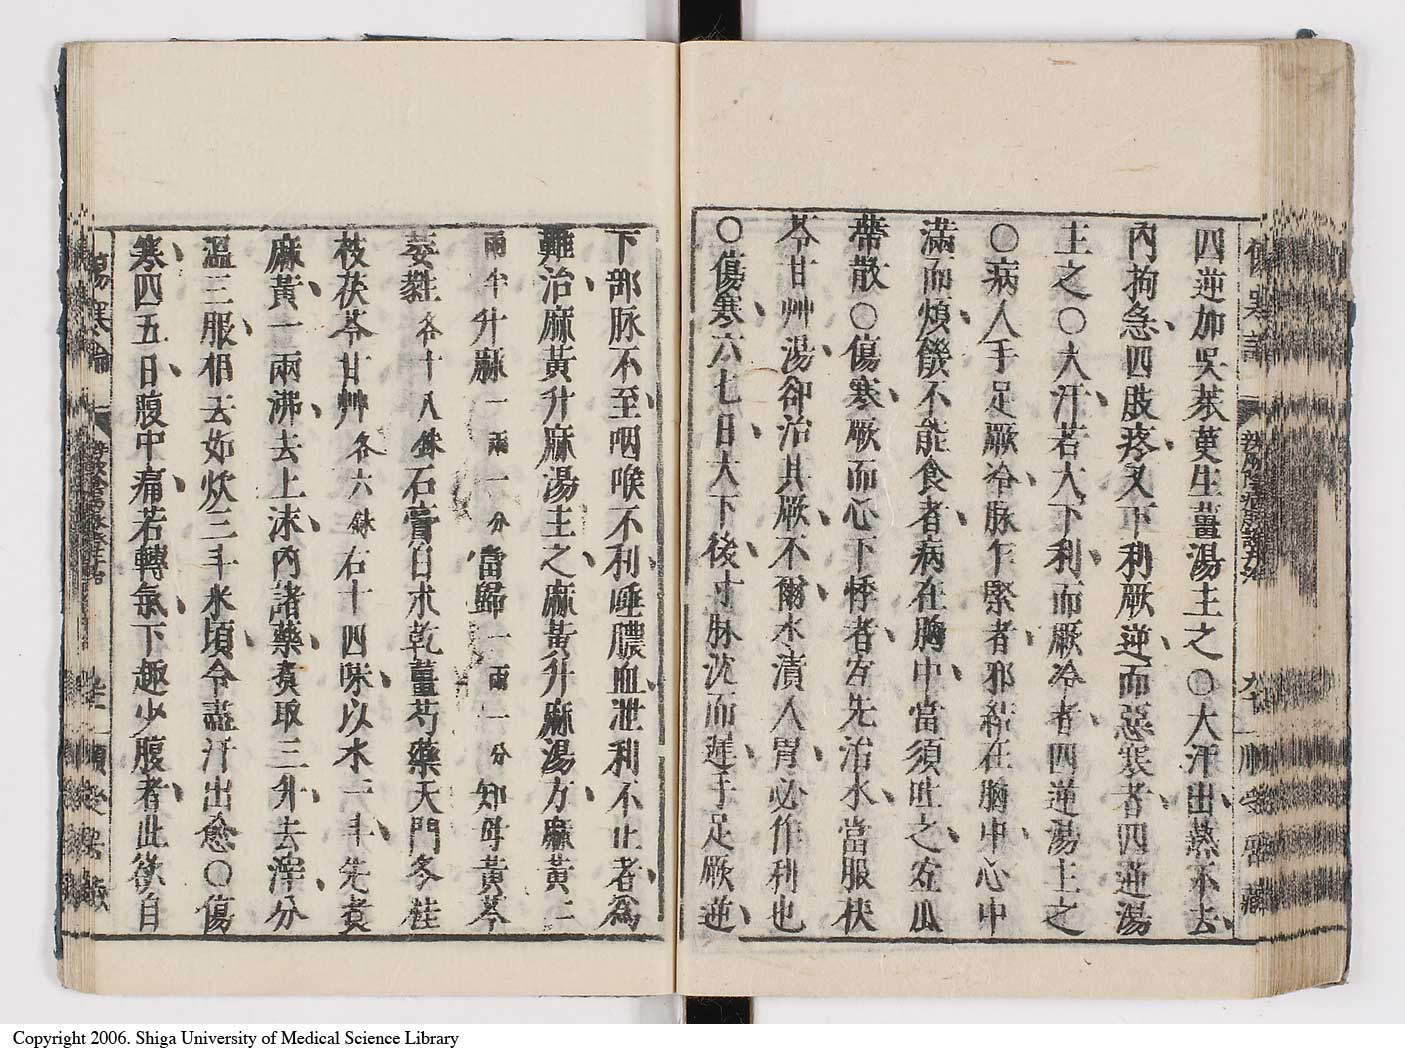 四逆加吳茱萸生薑湯主之○大汗出熱不去
內拘急四肢疼又下利厥逆而惡寒者四逆湯
主之○大汗若大下利而厥冷者四逆湯主之
○病人手足厥冷脉乍緊者邪結在胸中心中
滿而煩饑不能食者病在胸中當須吐之宜瓜
蒂散○傷寒厥而心下悸者宜先治水當服茯
苓甘艸湯卻治其厥不爾水漬入胃必作利也
○傷寒六七日大下後寸脉沈而遲手足厥逆
下部脉不至咽喉不利唾膿血泄利不止者爲
難治麻黃升麻湯主之麻黃升麻湯方麻黃二
兩半升麻一兩一分當歸一兩一分知母黃芩
萎蕤各十八銖石膏白朮乾薑芍藥天門冬桂
枝茯苓甘艸各六銖右十四味以水一斗先煑
麻黃一兩沸去上沫內諸藥煑取三升去滓分
溫三服相去如炊三斗米頃令盡汗出愈○傷
寒四五日腹中痛若轉氣下趣少腹者此欲自
傷寒論
Copyright 2006. Shiga University of Medical Science Library